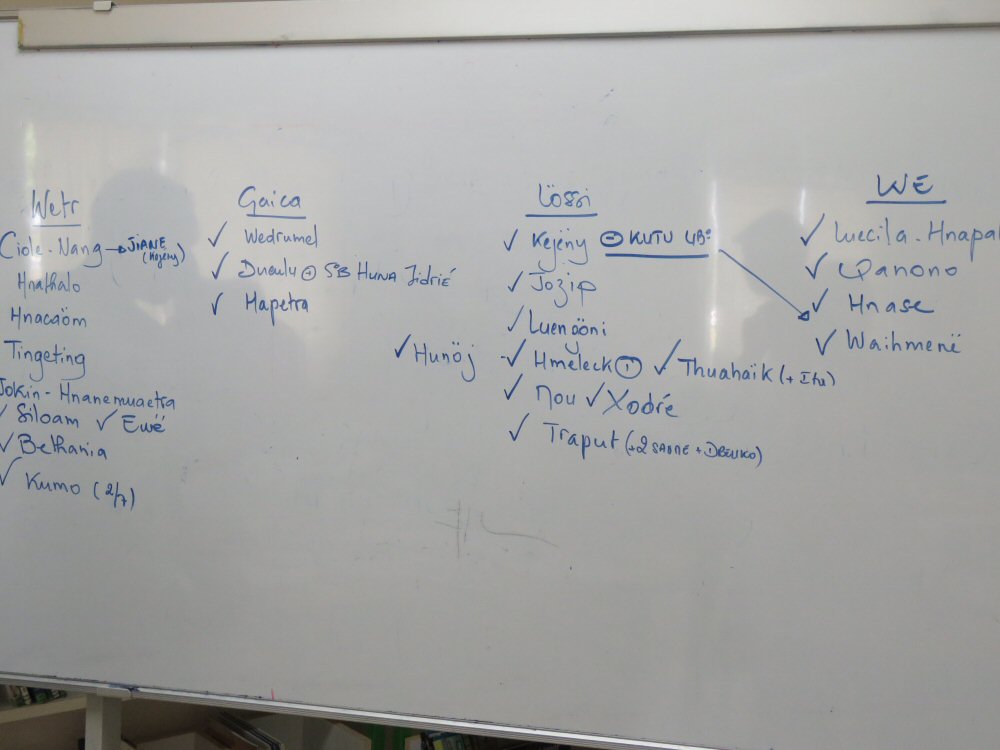 Wetr
Ciole-Nang → JIANE
(Kejëny)
Hnathalo
Hnacaöm
Tingeting
Jokin - Hnanemuaetra
✓ Siloam ✓ Ewë
✓ Bethania
✓ Kumo (2/7)
Gaica
✓ Wedrumel
✓ Dueulu + HUNA Jidrié
✓ Hapetra
Lössi
✓ Kejëny - KUTU
✓ Jozip
✓ Luengöni
✓ Hunöj - ✓ Hmeleck ✓ Thuahaik
✓ Mou ✓ Xodre
✓ Traput
WE
✓ Luecila - Hnapal
✓ Qanono
✓ Hnase
✓ Waihmenë